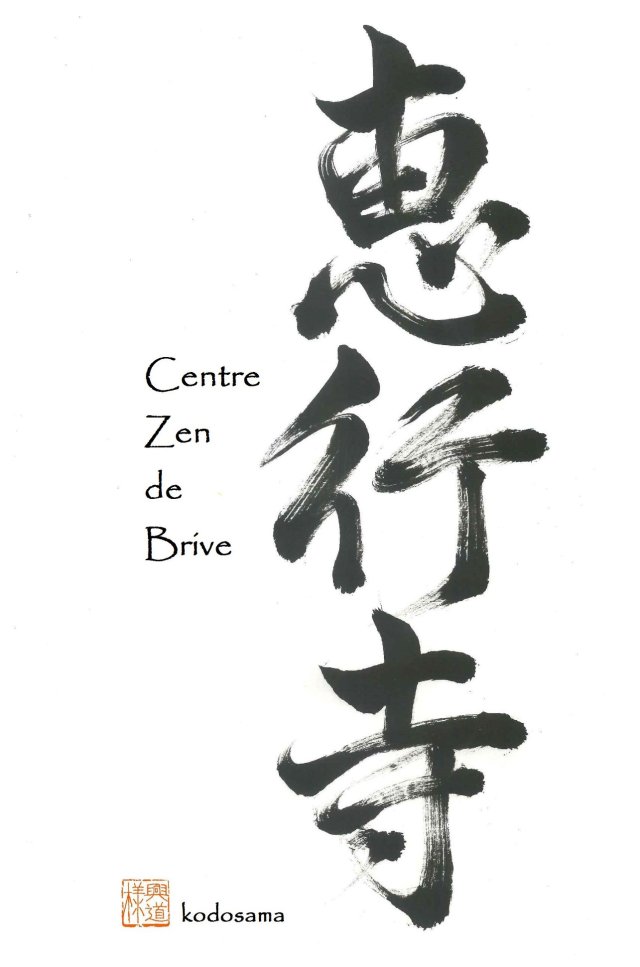 惠行寺
Centre
Zen
de
Brive
興道
様
kodosama